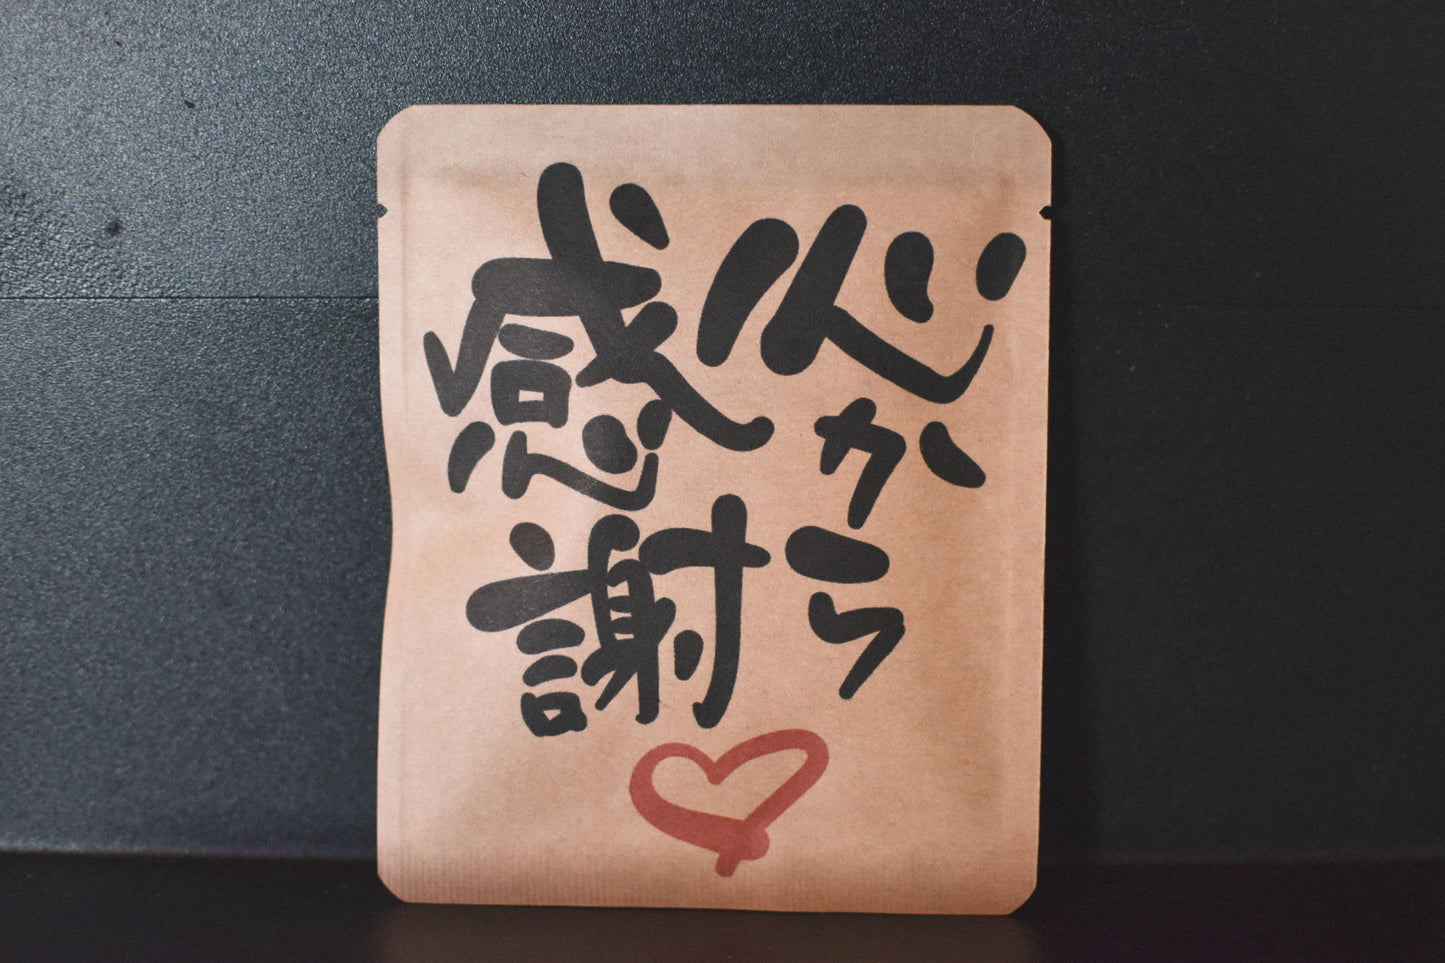 心から
感謝